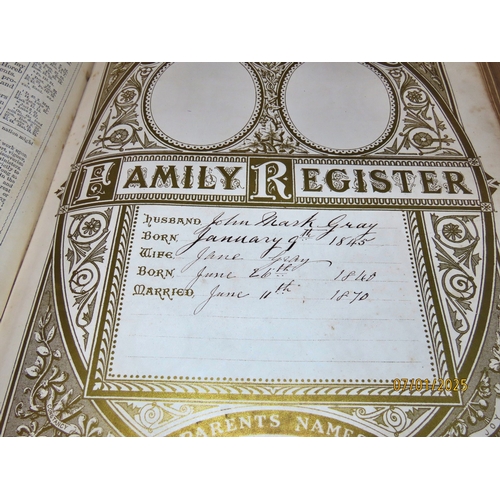 FAMILY REGISTER
HUSBAND John Mash Gray
BORN January 9th 1845
WIFE Jane Gray
BORN June 26th 1840
MARRIED June 11th 1870
07/01/2025
PARENTS NAMES